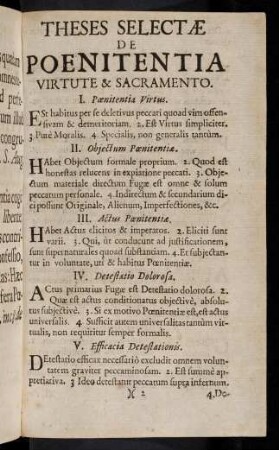 THESES SELECTÆ
DE
POENITENTIA
VIRTUTE & SACRAMENTO.
I. Pœnitentia Virtus.
ESt habitus per se deletivus peccati quoad vim offen-
sivam & demeritoriam. 2. Est Virtus simpliciter.
3. Pure Moralis. 4. Specialis, non generalis tantùm.
II. Objectum Pœnitentiæ.
HAbet Objectum formale proprium. 2. Quod est
honestas relucens in expiatione peccati. 3. Obje-
ctum materiale directum Fugæ est omne & solum
peccatum personale. 4. Indirectum & secundarium di-
ci possunt Originale, Alienum, Imperfectiones, &c.
III. Actus Pœnitentiæ.
HAbet Actus elicitos & imperatos. 2. Eliciti sunt
varii. 3. Qui, ut conducant ad justificationem,
sunt supernaturales quoad substantiam. 4. Et subjectan-
tur in voluntate, uti & habitus Pœnitentiæ.
IV. Detestatio Dolorosa.
ACtus primarius Fugæ est Detestatio dolorosa. 2.
Quæ est actus conditionatus objectivè, absolu-
tus subjectivè. 3. Si ex motivo Pœnitentiæ est, est actus
universalis. 4. Sufficit autem universalitas tantùm vir-
tualis, non requiritur semper formalis.
V. Efficacia Detestationis.
DEtestatio efficax necessariò excludit omnem volun-
tatem graviter peccaminosam. 2. Est summè ap-
pretiativa. 3 Ideo detestatur peccatum supra infernum.
2
4. De-